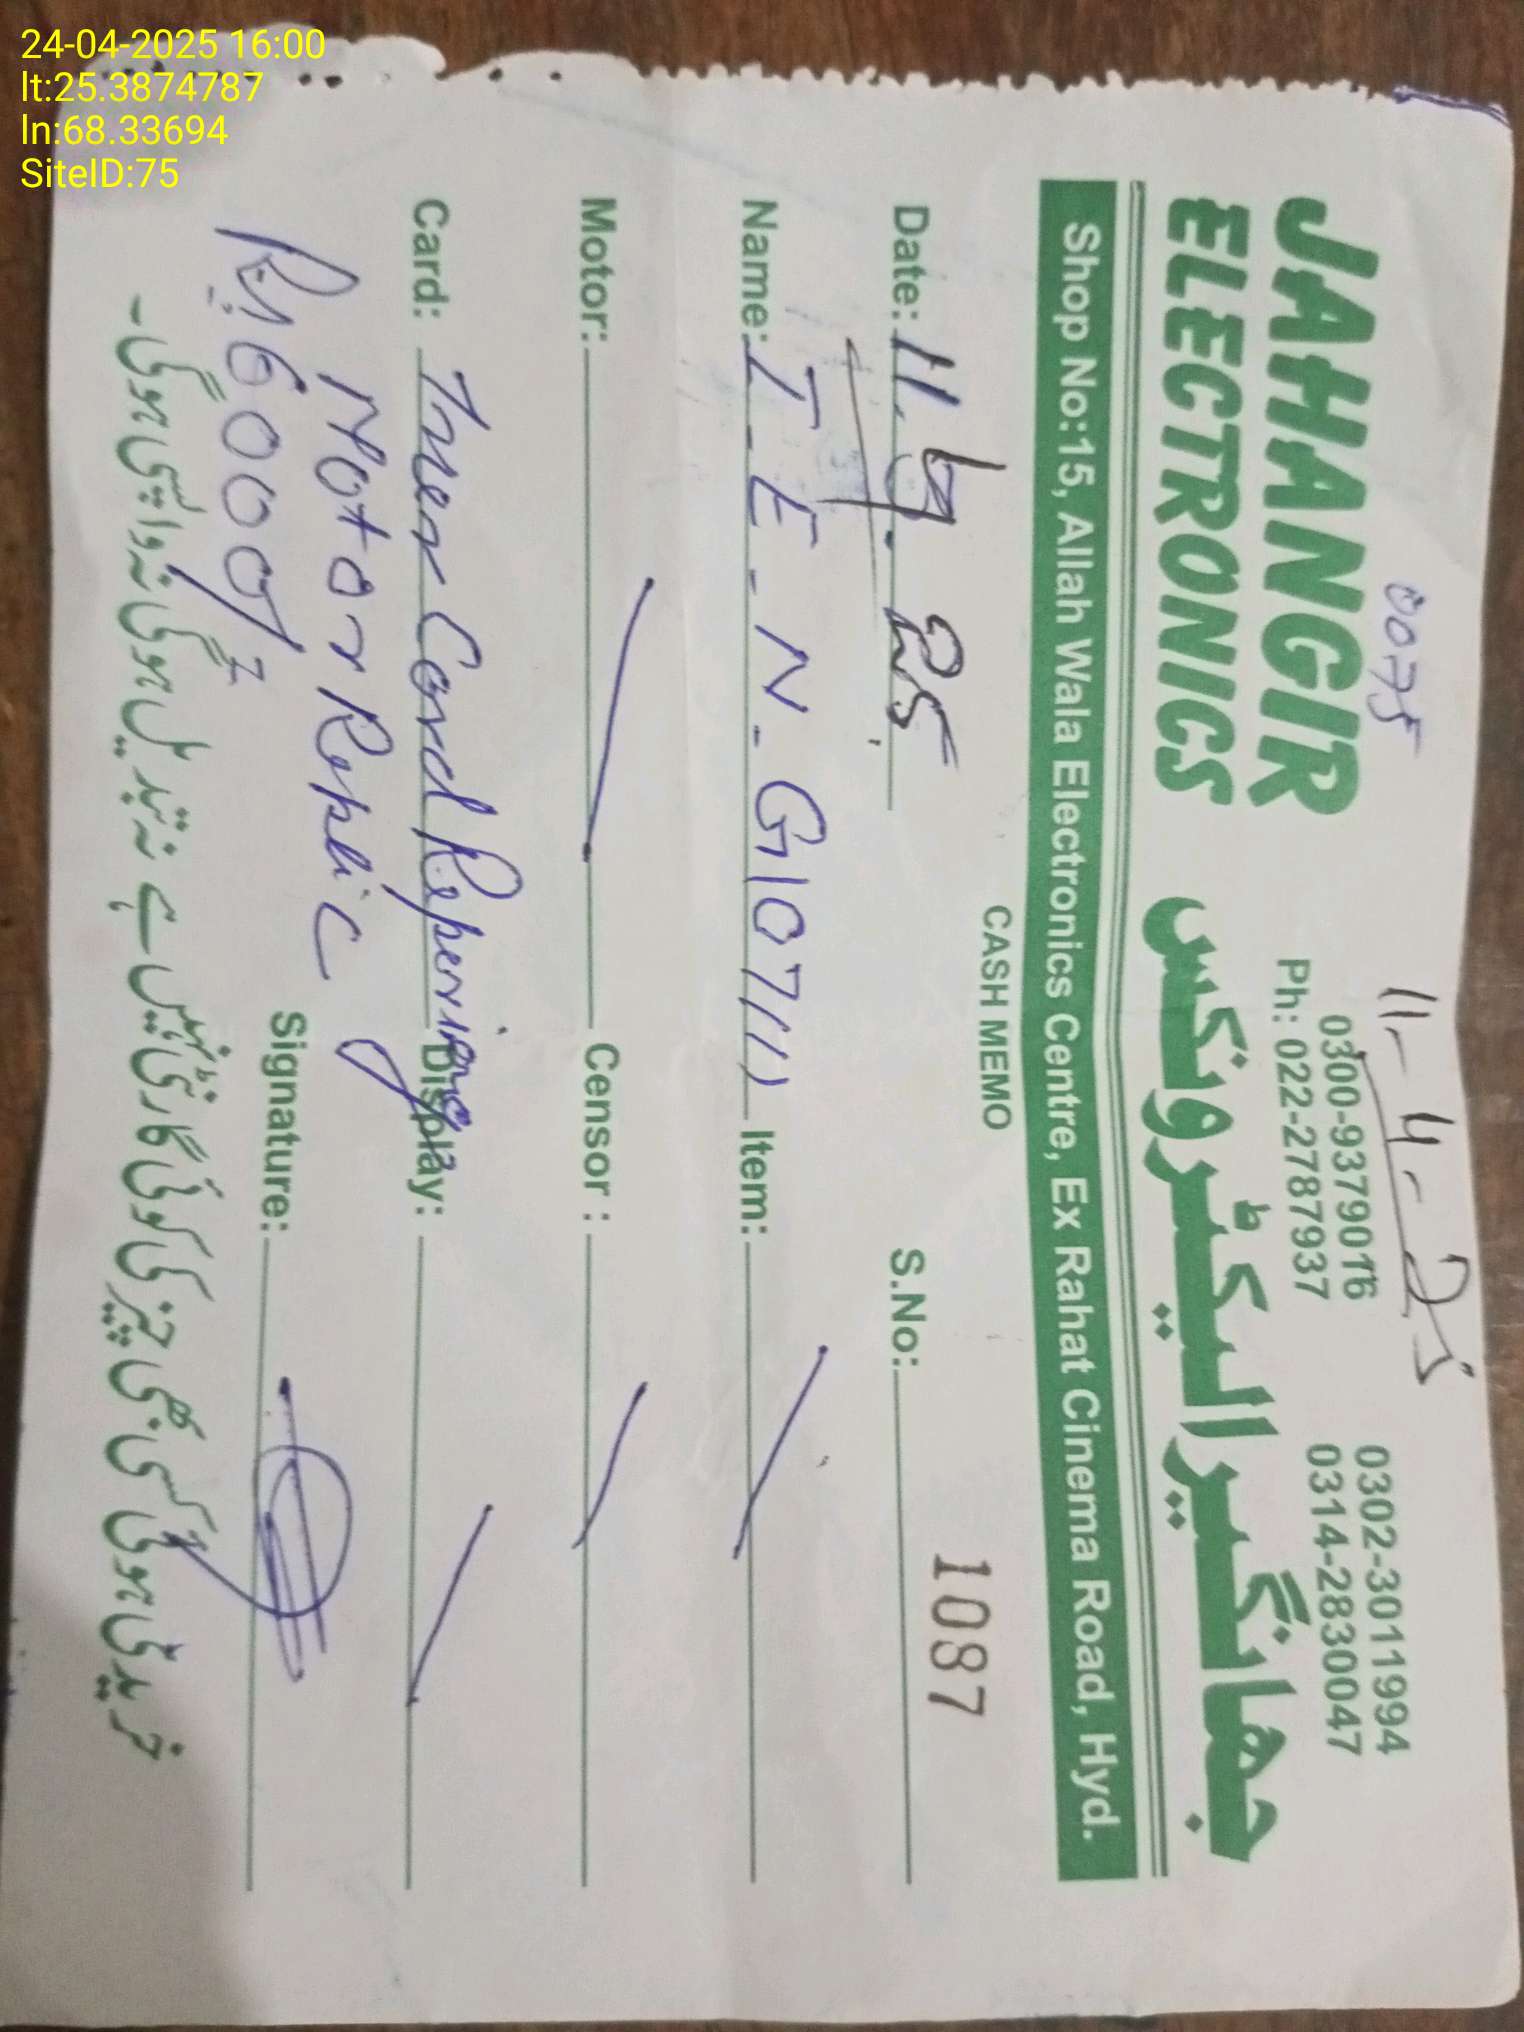 24-04-2025 16:00
lt:25.3874787
ln:68.33694
SiteID:75
0075
11-4-25
JAHANGIR
ELECTRONICS
0300-9379016
Ph: 022-2787937
0302-3011994
0314-2830047
جهانگير اليکٹرونکس
Shop No:15, Allah Wala Electronics Centre, Ex Rahat Cinema Road, Hyd.
CASH MEMO
Date: 11.4.25 S.No: 1087
Name: T-E-N-G10711) Item:
Motor: Censor :
Card: Iner Card Repering Display:
Motor Replic
Rs 6000/=
Signature:
خریدی ہوئی کسی بھی چیز کی کوئی گارنٹی نہیں ہے نہ تبدیل ہوگی نہ واپسی ہوگی۔